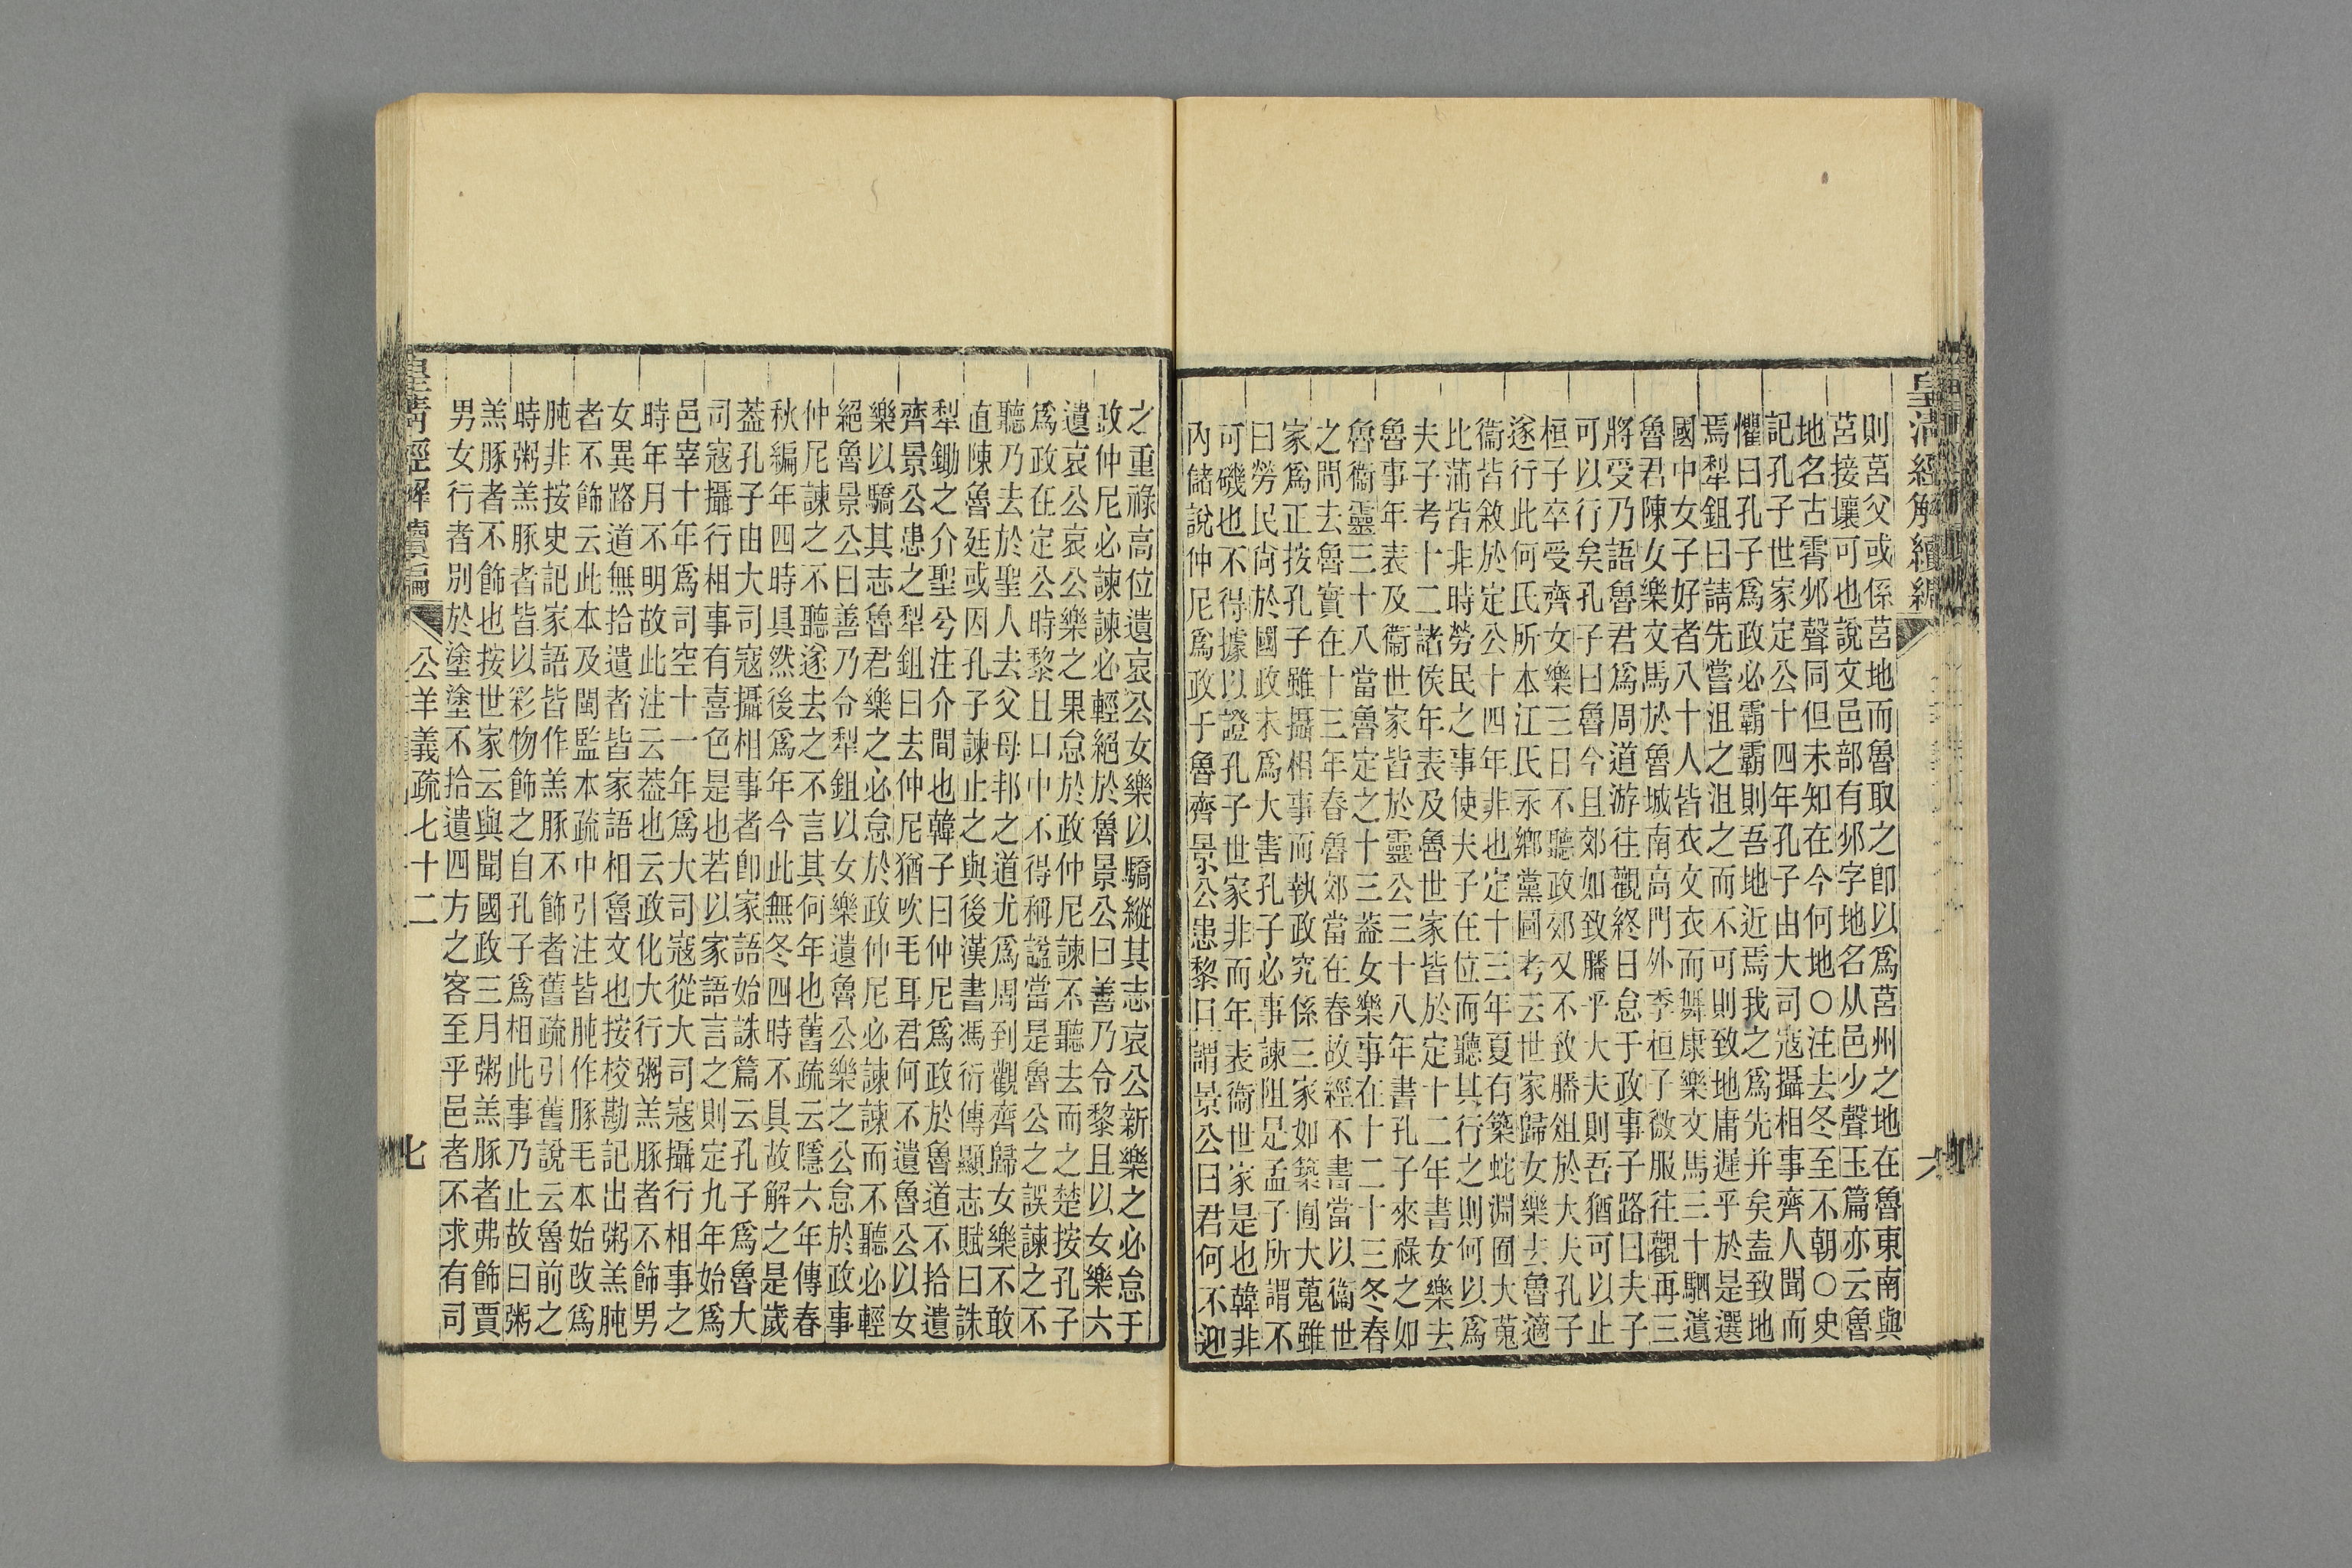 皇淸經解續編
則莒父或係莒地而魯取之卽以爲莒州之地在魯東南與
莒接壤可也說文邑部有邜字地名从邑少聲玉篇亦云魯
地名古霄邜聲同但未知在今何地○注去冬至不朝○史
記孔子世家定公十四年孔子由大司寇攝相事齊人聞而
懼曰孔子爲政必霸霸則吾地近焉我之爲先并矣盍致地
焉犁鉏曰請先嘗沮之沮之而不可則致地庸遲乎於是選
國中女子好者八十人皆衣文衣而舞康樂文馬三十駟遺
魯君陳女樂文馬於魯城南高門外季桓子微服往觀再三
將受乃語魯君爲周道游往觀終日怠于政事子路曰夫子
可以行矣孔子曰魯今且郊如致膰乎大夫則吾猶可以止
桓子卒受齊女樂三日不聽政郊又不致膰俎於大夫孔子
遂行此何氏所本江氏永鄉黨圖考云世家歸女樂去魯適
衞皆敘於定公十四年非也定十三年夏有築蛇淵囿大蒐
比蒲皆非時勞民之事使夫子在位而聽其行之則何以爲
夫子考十二諸侯年表及魯世家皆於定十二年書女樂去
魯事年表及衞世家皆於靈公三十八年書孔子來祿之如
魯衞靈三十八當魯定之十三蓋女樂事在十二十三冬春
之間去魯實在十三年春魯郊當在春故經不書當以衞世
家爲正按孔子雖攝相事而執政究係三家如築囿大蒐雖
曰勞民尙於國政未爲大害孔子必事諫阻是孟子所謂不
可磯也不得據以證孔子世家非而年表衞世家是也韓非
內儲說仲尼爲政于魯齊景公患黎曰謂景公曰君何不迎
之重祿高位遺哀公女樂以驕縱其志哀公新樂之必怠于
政仲尼必諫諫必輕絕於魯景公曰善乃令黎且以女樂六
遺哀公哀公樂之果怠於政仲尼諫不聽去而之楚按孔子
爲政在定公時黎且口中不得稱謚當是魯公之誤諫之不
聽乃去於聖人去父母邦之道尤爲周到觀齊歸女樂不敢
直陳魯廷或因孔子諫止之與後漢書馮衍傳顯志賦曰誅
犁鋤之介聖兮注介間也韓子曰仲尼爲政於魯道不拾遺
齊景公患之犁鉏曰去仲尼猶吹毛耳君何不遺魯公以女
樂以驕其志魯君樂之必怠於政仲尼必諫諫而不聽必輕
絕魯景公曰善乃令犁鉏以女樂遺魯公樂之公怠於政事
仲尼諫之不聽遂去之不言其何年也舊疏云隱六年傳春
秋編年四時具然後爲年今此無冬四時不具故解之是歲
蓋孔子由大司寇攝相事者卽家語始誅篇云孔子爲魯大
司寇攝行相事有喜色是也若以家語言之則定九年始爲
邑宰十年爲司空十一年爲大司寇從大司寇攝行相事之
時年月不明故此注云蓋也云政化大行粥羔豚者不飾男
女異路道無拾遺者皆家語相魯文也按校勘記出粥羔肫
者不飾云此本及閩監本疏中引注皆肫作豚毛本始改爲
肫非按史記家語皆作羔豚不飾者舊疏引舊說云魯前之
時粥羔豚者皆以彩物飾之自孔子爲相此事乃止故曰粥
羔豚者不飾也按世家云與聞國政三月粥羔豚者弗飾賈
男女行者別於塗塗不拾遺四方之客至乎邑者不求有司
皇淸經解續編 公羊義疏七十二 七